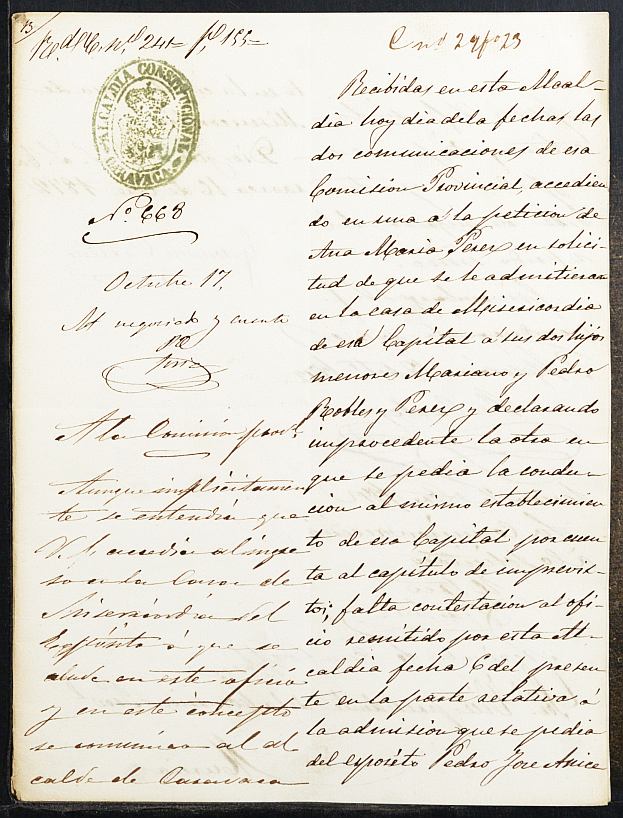 13
Rdo. C. nº 241 fº 155
C nº 29 fº 23
ALCALDIA CONSTITUCIONAL
CARAVACA
Nº 668
Octubre 17.
Al negociado y cuenta
A la Comision provl.
Aunque implícitamen
te se entendia que
V. E. accedia al ingre
so en la Casa de
Misericordia del
Expósito á que se
alude en este oficio
y en este concepto
se comunica al al
calde de Caravaca
Recibidas en esta Alcal-
dia hoy dia de la fecha las
dos comunicaciones de esa
Comision Provincial, accedien
do en una á la peticion de
Ana Maria Perez en solici-
tud de que se le admitieran
en la casa de Misericordia
de esa Capital á sus dos hijos
menores Mariano y Pedro
Robles y Perez y declarando
improcedente la otra en
que se pedia la conduc-
cion al mismo establecimien
to de esa Capital por cuen
ta al capítulo de imprevis-
tos; falta contestacion al ofi-
cio remitido por esta Al-
caldia fecha 6 del presen
te en la parte relativa á
la admision que se pedia
del expósito Pedro Jose Arice